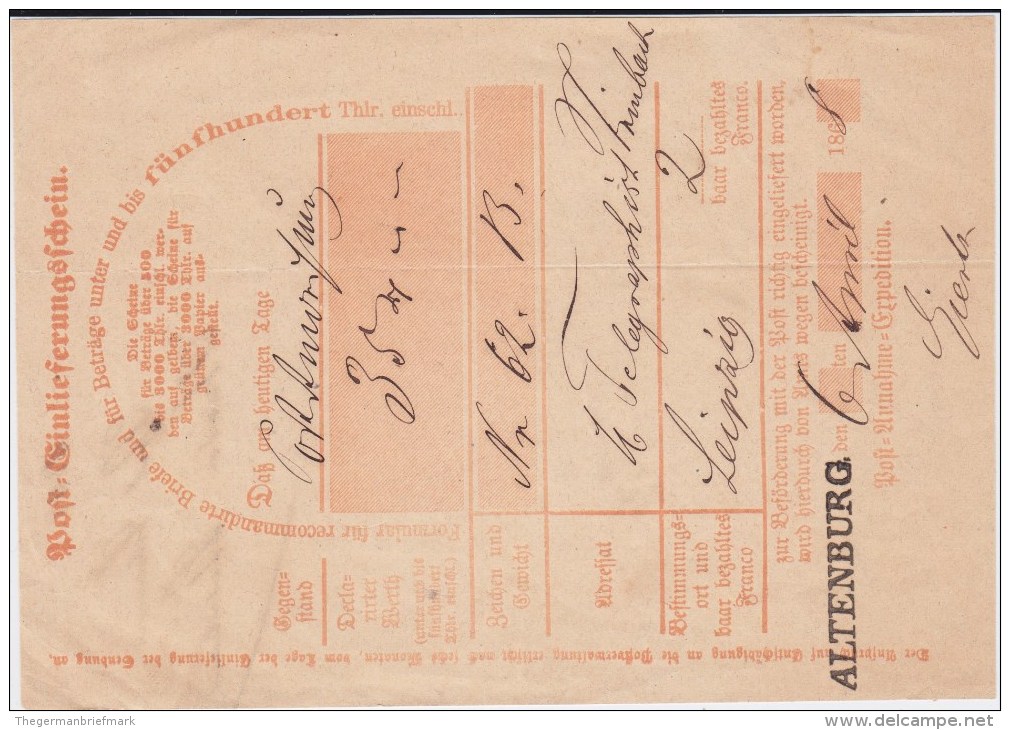 Post-Einlieferungsschein.
Formular für recommandirte Briefe und für Beträge unter und bis fünfhundert Thlr. einschl.
Die Scheine
für Beträge über 500
bis 3000 Thlr. einschl. wer-
den auf gelbem, die Scheine für
Beträge über 3000 Thlr. auf
grünem Papier aus-
gestellt.
Daß am heutigen Tage
Gegen-
stand
Postanweisung
Decla-
rirter
Werth
(unter und bis
fünfhundert
Thlr. einschl.)
Zeichen und
Gewicht
Nr 62. B.
Adressat
H Telegraphist
Bestimmungs-
ort und
baar bezahltes
Franco
Leipzig
2
baar bezahltes
Franco.
zur Beförderung mit der Post richtig eingeliefert worden,
wird hierdurch von Amts wegen bescheinigt.
ALTENBURG. den 6 ten April 1868
Post-Annahme-Expedition.
Der Anspruch auf Entschädigung an die Postverwaltung erlischt nach sechs Monaten, vom Tage der Einlieferung der Sendung an.
Thegermanbriefmark
delcampe.net